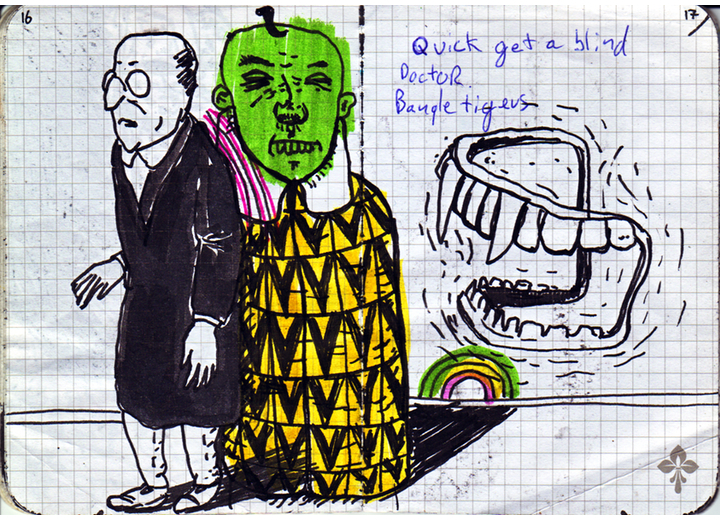 16
17
Quick get a blind
Doctor
Bangle tigers